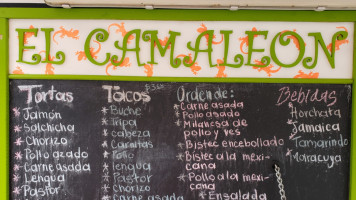 EL CAMALEON
Tortas
* Jamón
* Salchicha
* Chorizo
* Pollo asado
* Carne asada
* Lengua
* Pastor
Tacos
* Buche
* Tripa
* cabeza
* Carnitas
* Pollo
* lengua
* Pastor
* chorizo
* Carne asada
Orden de:
* Carne asada
* Pollo asado
* Milanesa de
pollo y res
* Bistec encebollado
* Bistec a la mexi-
cana
* Pollo a la mexi-
cana
* Ensalada
Bebidas
* Horchata
* Jamaica
* Tamarindo
* Maracuya